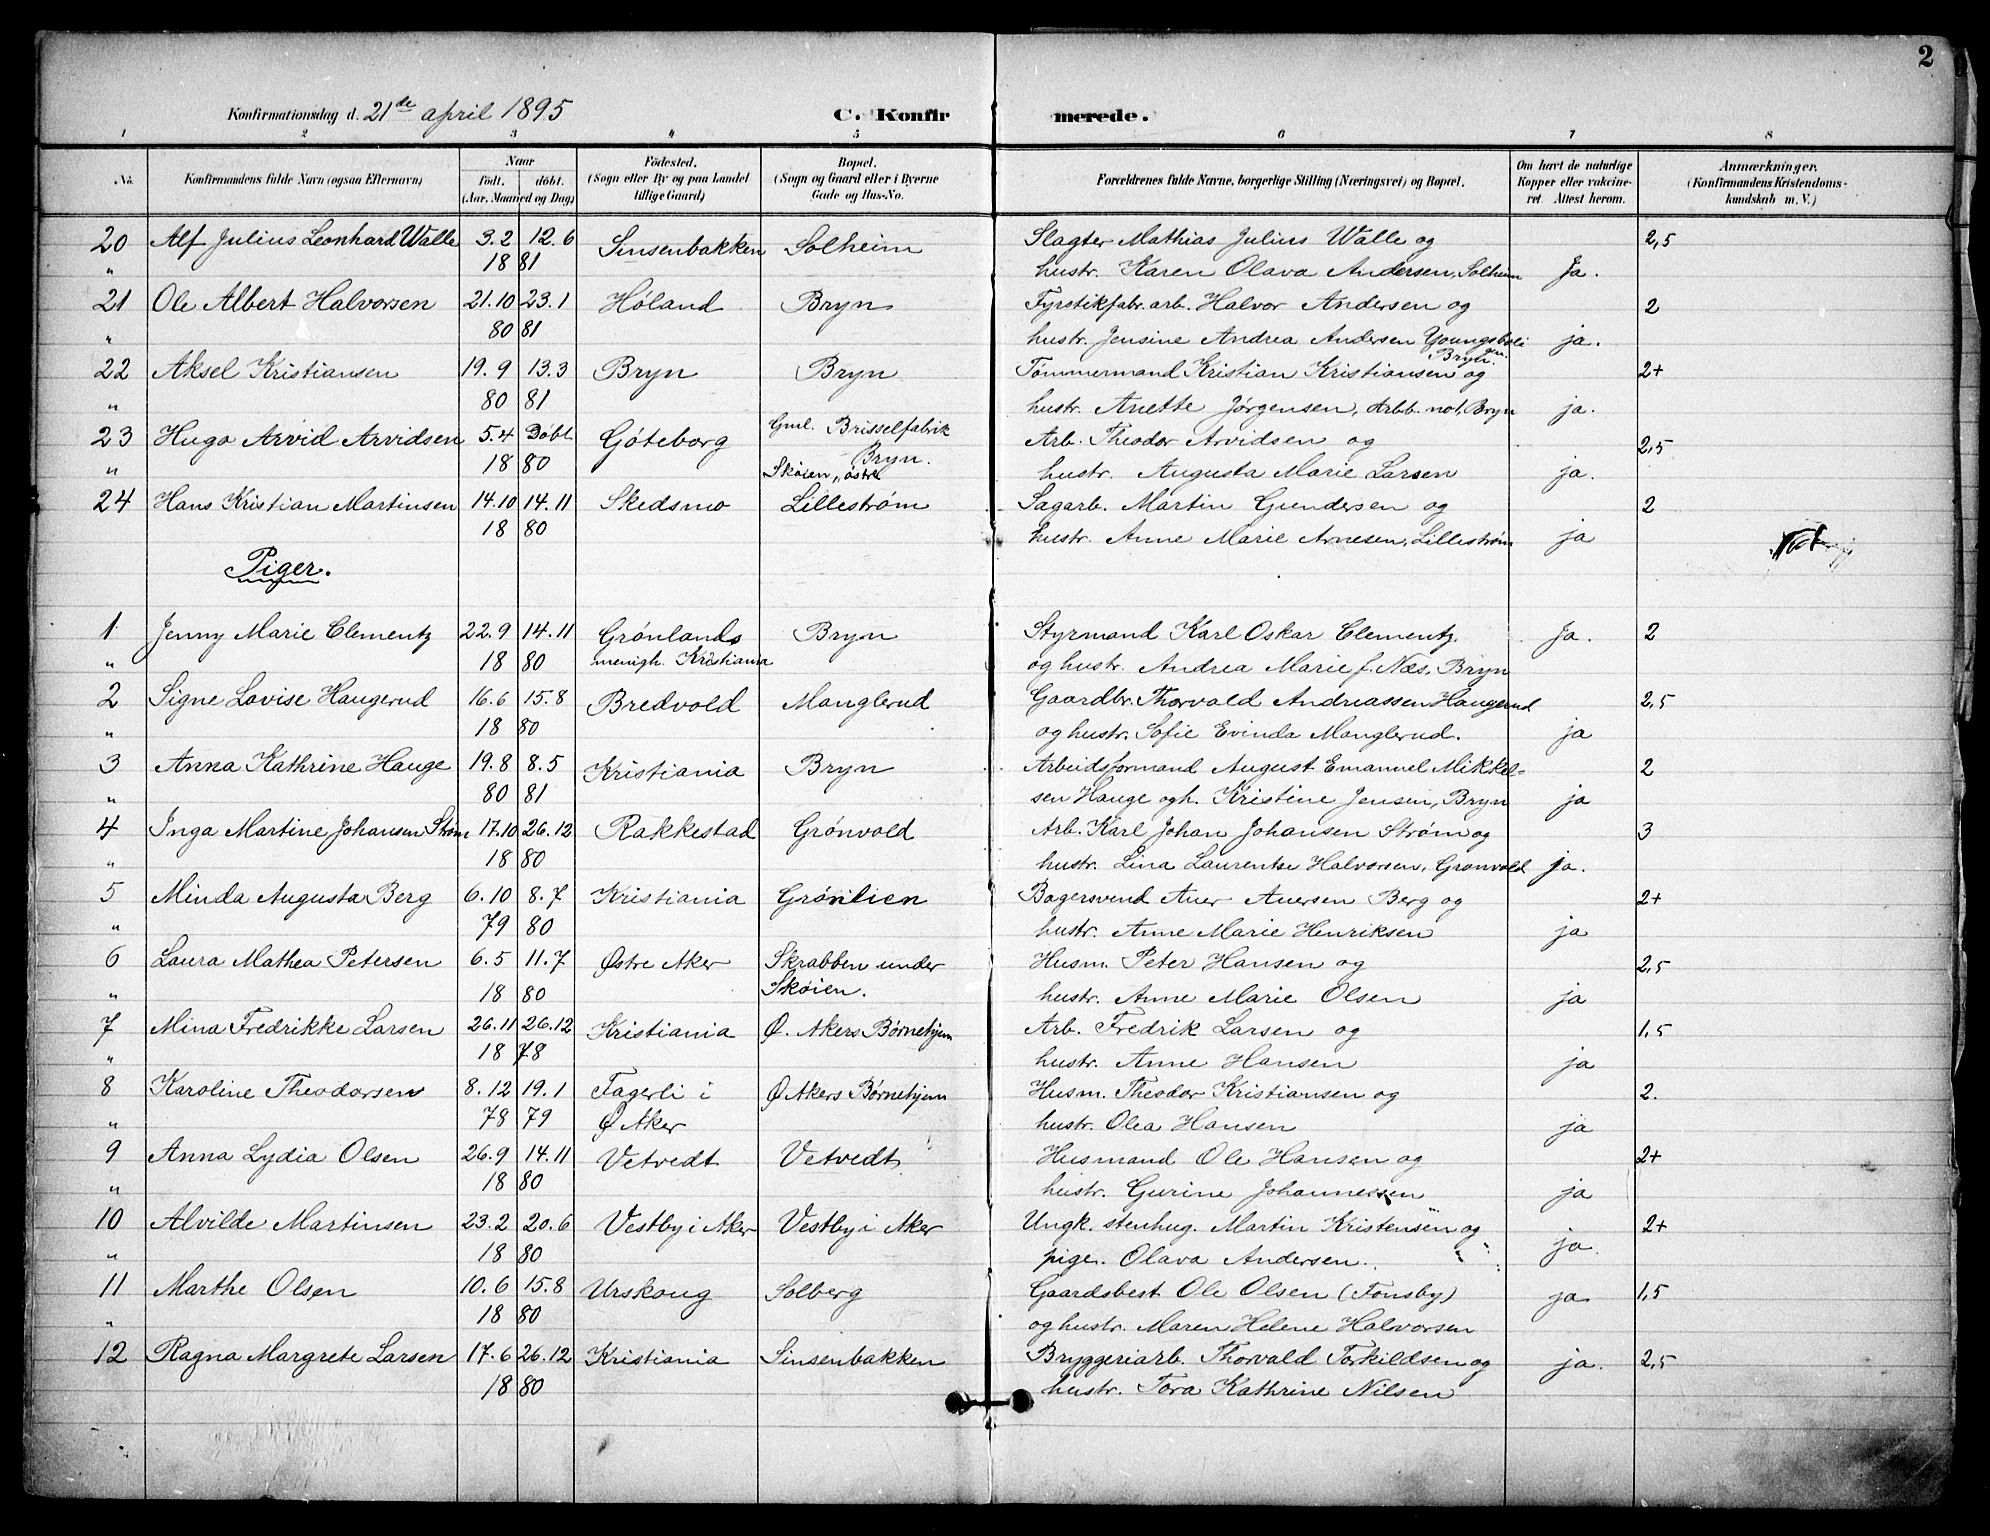 2
Konfirmationsdag d. 21de april 1895 C. Konfir merede.
1 2 3 4 5 6 7 8
No. Konfirmandens fulde Navn (ogsaa Efternavn) Naar Födt. döbt. (Aar. Maaned og Dag) Födested. (Sogn eller By og paa Landet tillige Gaard) Bopæl. (Sogn og Gaard eller i Byerne Gade og Hus-No. Forældrenes fulde Navne, borgerlige Stilling (Næringsvei) og Bopæl. Om havt de naturlige Kopper eller vakcineret. Attest herom. Anmærkninger. (Konfirmandens Kristendomskundskab m. V.)
20 Alf Julius Leonhard Walle 3.2 12.6 Sinsenbakken Solheim Slagter Mathias Julius Walle og 2,5
" 18 81 hustr. Karen Olava Andersen, Solheim Ja.
21 Ole Albert Halvorsen 21.10 23.1 Høland Bryn Fyrstikfabr.arb. Halvor Andersen og 2
" 80 81 hustr. Jensine Andrea Andersen ja.
Bryn.
22 Aksel Kristiansen 19.9 13.3 Bryn Bryn Tømmermand Kristian Kristiansen og 2+
" 80 81 hustr. Anette Jørgensen, Arbb. not, Bryn ja.
23 Hugo Arvid Arvidsen 5.4 Døbt Göteborg Gml. Brisselfabrik Arb. Theodor Arvidsen og 2,5
Bryn.
" 18 80 Skøien, østre hustr. Augusta Marie Larsen ja.
24 Hans Kristian Martinsen 14.10 14.11 Skedsmo Lillestrøm Sagarb. Martin Gundersen og 2
18 80 hustr. Anne Marie Arnesen, Lillestrøm ja
Piger.
1 Jenny Marie Clementz 22.9 14.11 Grønlands Bryn Styrmand Karl Oskar Clementz. Ja. 2
" 18 80 menigh. Kristiania og hustr. Andrea Marie f. Næs, Bryn
2 Signe Lovise Haugerud 16.6 15.8 Bredvold Manglerud Gaardbr. Thorvald Andreassen Haugerud 2,5
" 18 80 og hustr. Sofie Evinda Manglerud. ja
3 Anna Kathrine Hauge 19.8 8.5 Kristiania Bryn Arbeidsformand August Emanuel Mikkel- 2
" 80 81 sen Hauge og h. Kristine Jensen, Bryn ja
4 Inga Martine Johansen Strøm 17.10 26.12 Rakkestad Grønvold Arb. Karl Johan Johansen Strøm og 3
" 18 80 hustr. Lina Laurentse Halvorsen, Grønvold ja.
5 Minda Augusta Berg 6.10 8.7 Kristiania Grønlien Bagersvend Auer Auersen Berg og 2+
" 79 80 hustr. Anne Marie Henriksen ja
6 Laura Mathea Petersen 6.5 11.7 Østre Aker Skrabben under Husm. Peter Hansen og 2,5
" 18 80 Skøien. hustr. Anne Marie Olsen ja
7 Mina Fredrikke Larsen 26.11 26.12 Kristiania Ø. Akers Børnehjem Arb. Fredrik Larsen og 1,5
" 18 78 hustr. Anne Hansen ja
8 Karoline Theodorsen 8.12 19.1 Fagerli i Ø Akers Børnehjem Husm. Theodor Kristiansen og 2.
" 78 79 Ø Aker hustr. Olea Hansen ja
9 Anna Lydia Olsen 26.9 14.11 Vetvedt Vetvedt Husmand Ole Hansen og 2+
" 18 80 hustr. Gurine Johannessen ja
10 Alvilde Martinsen 23.2 20.6 Vestby i Aker Vestby i Aker Ungk. stenhug. Martin Kristensen og 2+
" 18 80 pige. Olava Andersen. ja.
11 Marthe Olsen 10.6 15.8 Urskoug Solberg Gaardsbest. Ole Olsen (Fonsby) ja 1,5
" 18 80 og hustr. Maren Helene Halvorsen
12 Ragna Margrete Larsen 17.6 26.12 Kristiania Sinsenbakken Bryggeriarb. Thorvald Torkildsen og ja. 2,5
18 80 hustr. Tora Kathrine Nilsen